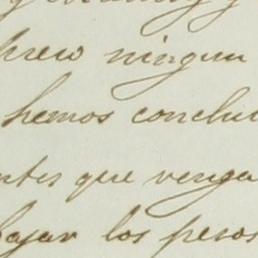 ningun
hemos conclui
ntes que venga
bajar los pesos